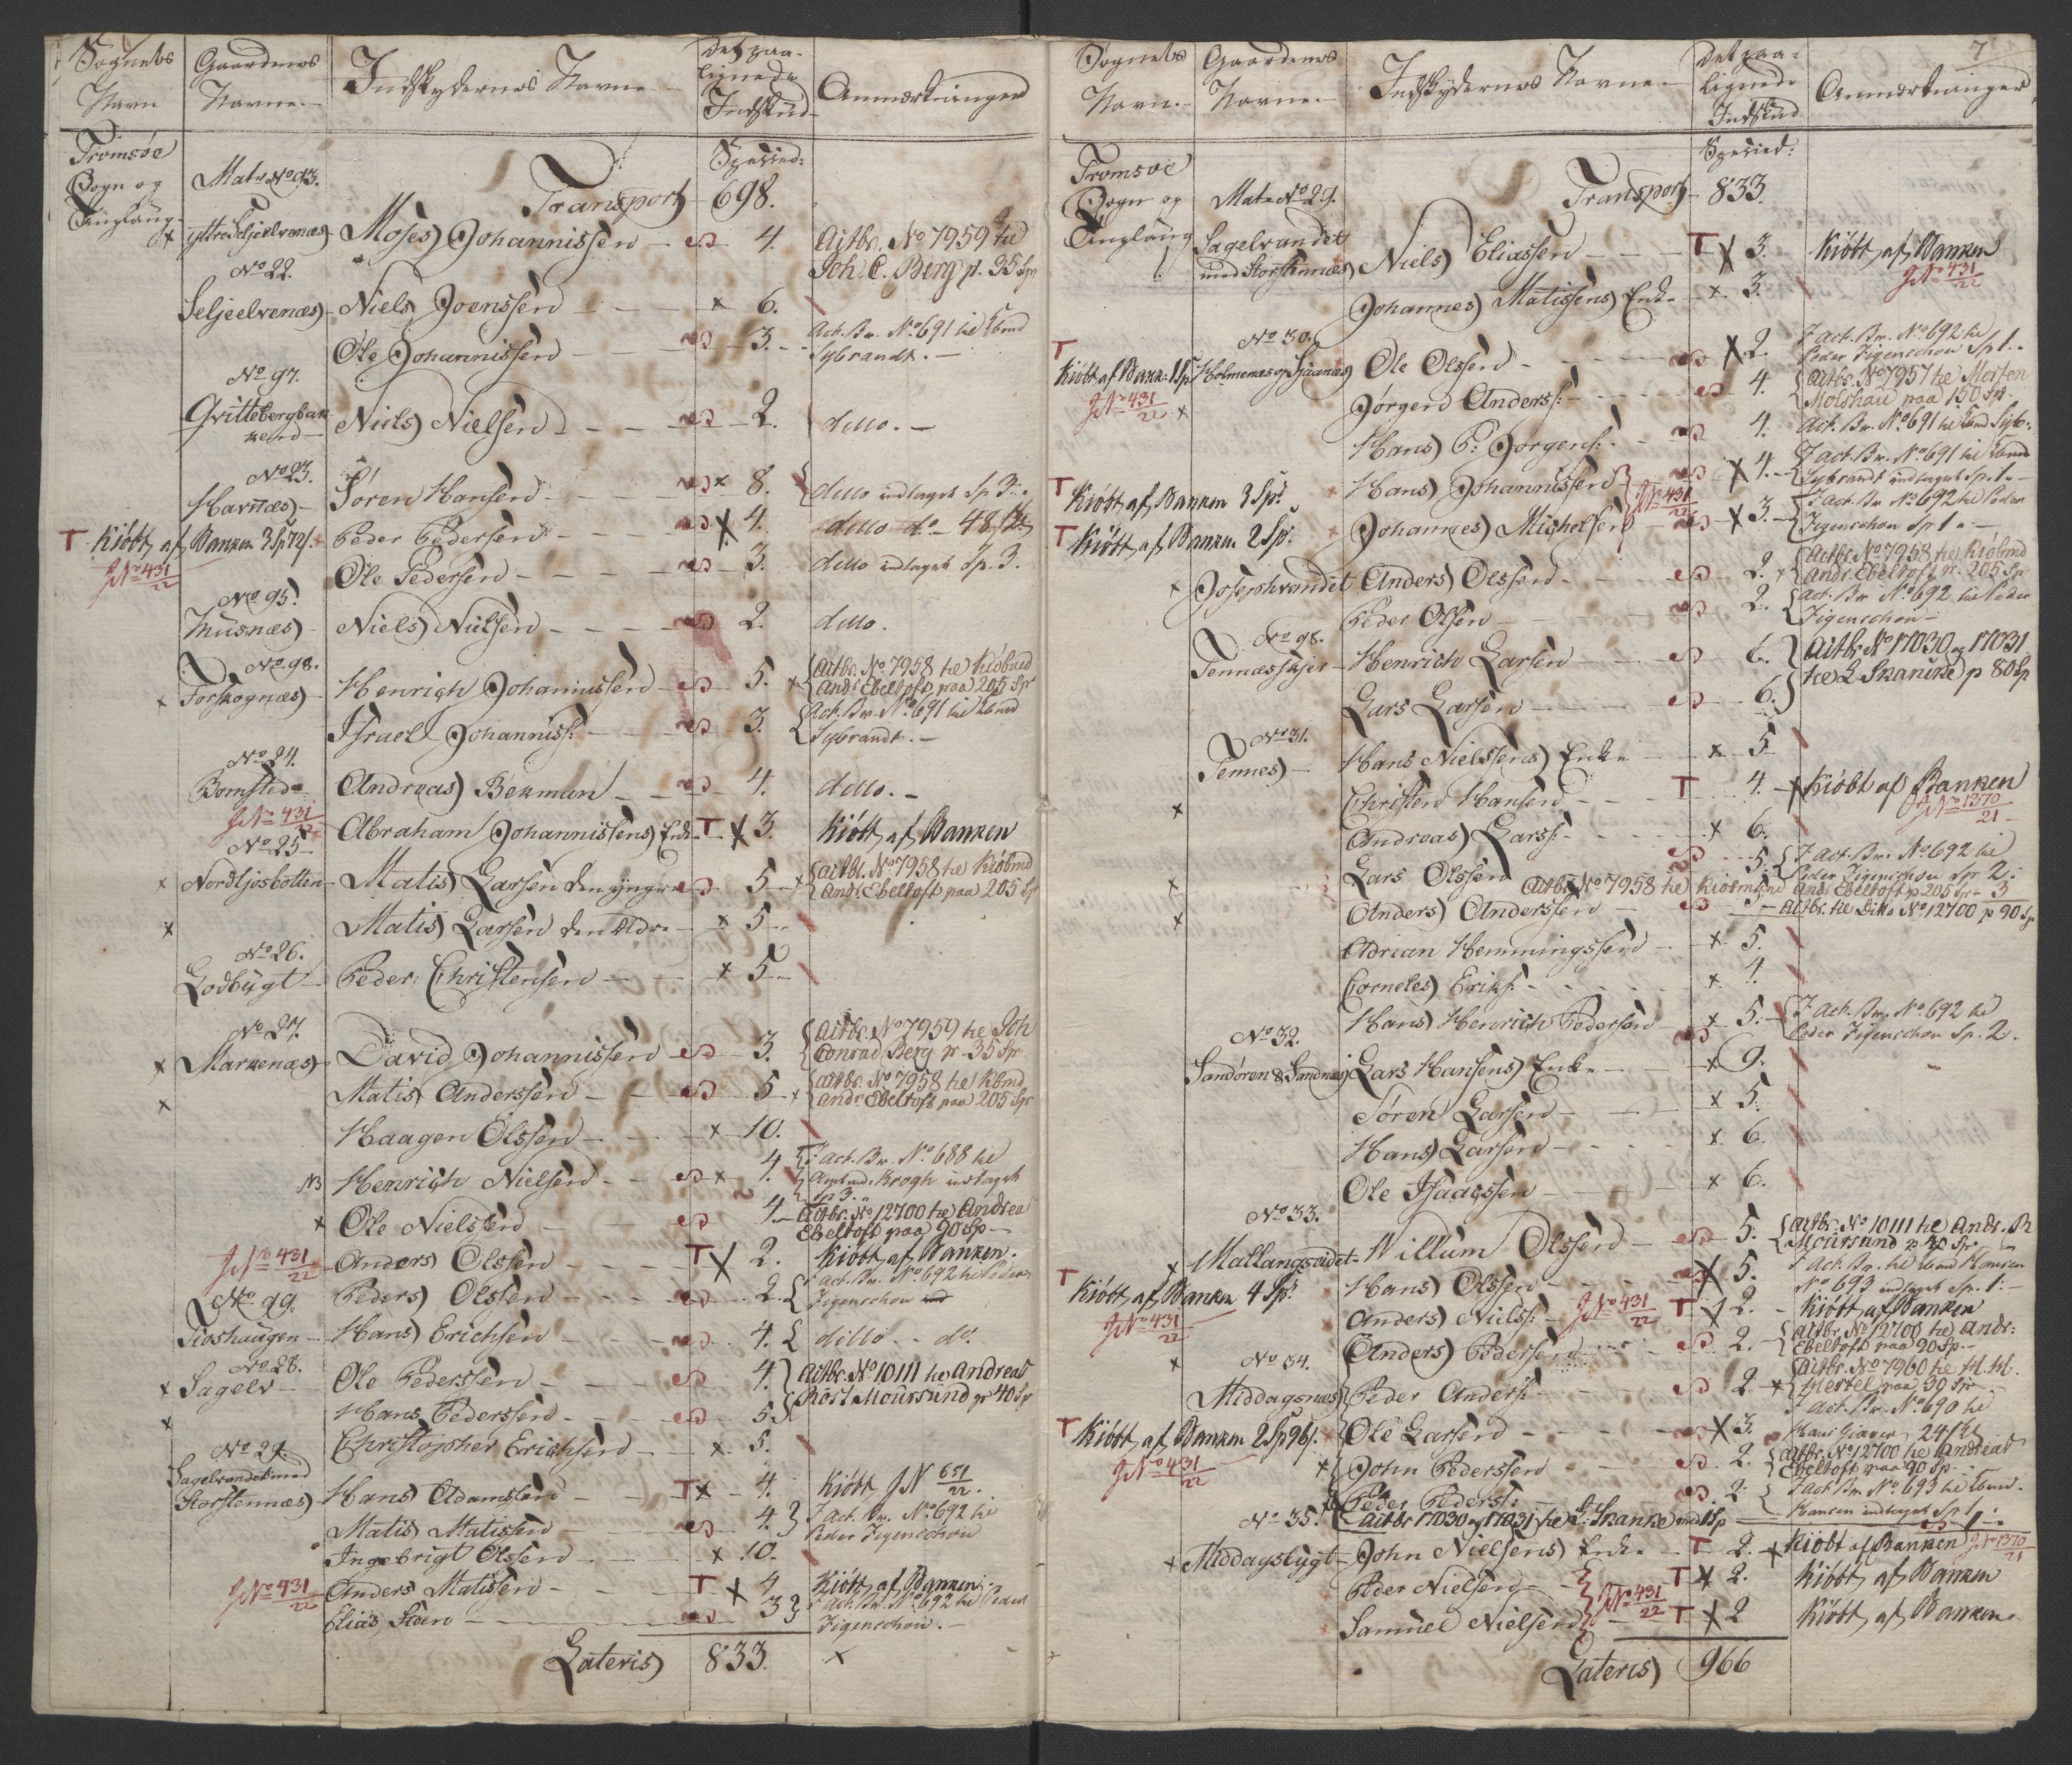 Sognets Navn
Gaardenes Navne.
Indskydernes Navne
Det paalignede Indskud
Anmærkninger
Tromsøe Sogn og Tinglaug
Transport 698.
Specied:
Matr No 93.
ÿttre Seljeelvenæs Moses Johannissen 4. Actbr. No 7959 til
Joh. C. Berg p. 35 Sp
No 22.
Seljeelvenæs Niels Joenssen × 6.
Ole Johannissen 3. Act. Br. No 691 til Kbmd
Sybrandt.
No 97.
Qvittebergbakkend Niels Nielsen 2. dillo.
No 23.
Havnæs Søren Hansen × 8. dillo indtaget Sp 3.
T Kiöbt af Banken 3 Sp 72 s. Peder Pedersen × 4. dillo do 48 s
J No 431/22
Ole Pedersen 3. dillo indtaget Sp. 3.
No 95.
Musnæs Niels Nielsen 2. dillo.
No 98.
× Forskognæs Henrich Johannissen 5. × Actbr. No 7958 til Kiöbmd
Andr. Ebeltoft paa 205 Sp
Israel Johanniss: 3. Act. Br. No 691 til Kbmd
Sybrandt.
No 24.
Bomsted Andreas Bekman 4. dillo.
J No 431/22
Abraham Johannissens Enke T × 3. Kiöbt af Banken
No 25
× Nordkjosbotten Matis Larsen den yngre 5 × Actbr. No 7958 til Kiöbmd
Andr. Ebeltoft paa 205 Sp
× Matis Larsen den Ældre × 5
No 26.
Godbÿgt Peder Christensen × 5
No 27.
× Markenæs David Johannissen 3. Actbr. No 7959 til Joh
Conrad Berg p. 35 Sp
× Matis Anderssen 5 × Actbr. No 7958 til Kbmd
Andr. Ebeltoft paa 205 Sp
Haagen Olssen × 10.
NB Henrich Nielsen × 4. Act. Br. No 688 til
Amtmd. Krogh indtaget
Sp 3.
× Ole Nielssen 4. Actbr. No 12700 til Andreas
Ebeltoft paa 90 Sp
J No 431/22 Anders Olssen T × 2. Kiöbt af Banken.
Peders Olssen 2. Act. Br. No 692 til Peder
Figenschou
No 99.
Fioshaugen Hans Erichsen 4. dillo do.
No 28.
× Sagelv Ole Pederssen 4. Actbr. No 10111 til Andreas
Rost Moursund p 40 Sp
× Hans Pederssen 5
Christopher Erichsen × 5.
No 29
Sagelvandet med
Storstennæs Hans Adamssen T × 4. Kiöbt J N 651/22.
Matis Matissen 4. Act. Br. No 692 til
Peder Figenschou
Ingebrigt Olssen × 10.
J No 431/22 Anders Matissen T × 4 Kiöbt af Banken
Elias Steen 3 Act. Br. No 692 til Peder
Figenschou.
Lateris 833. ×
7
Sognets Navn.
Gaardenes Navne.
Indskydernes Navne
Det paalignede Indskud
Anmærkninger
Specied:
Tromsöe Sogn og Tinglaug
Matr No 29.
Transport 833.
Sagelvandet
med Storstennæs Niels Eliassen T × 3. Kiöbt af Banken
J No 431/22
Johannes Matissens Enke × 3.
No 30.
T Kiöbt af Bank: 1 Sp Holmenæs og Sjaanæs Ole Olssen × 2. Act. Br. No 692 til
Peder Figenschou Sp 1.
J No 431/22 ×
Jørgen Anderss: 4 Actbr. No 7957 til Morten
Molshau paa 150 Sp
Hans P: Jørgens: 4. Act. Br. No 691 til Kbmd Sybr.
T Kiöbt af Banken 3 Sp. Hans Johannissen × 4. Act. Br. No 691 til Kbmd
Sybrandt indtaget Sp. 1.
J No 431/22
T Kiöbt af Banken 2 Sp. Johannes Michelsen × 3. Act. Br No 692 til Peder
Figenschou Sp 1.
× Josephvandet Anders Olssen 2. × Actbr. No 7958 til Kiöbmd
Andr. Ebeltoft p. 205 Sp
Peder Olsen 2. Act. Br No 692 til Peder
Figenschou
No 98.
Tennæsskjer Henrich Larsen 6. Actbr No 17030 og 17031
til L Skancke p 80 Sp
Lars Larsen 6.
No 31.
Tennes Hans Nielssens Enke × 5
× Christen Hansen T 4. × Kiöbt af Banken
J No 1370/21
Andreas Larss: × 6.
Lars Olssen 5. Act. Br. No 692 til
Peder Figenschou Sp 2.
× Actbr. No 7958 til Kiöbmand Andr. Ebeltoft p 205 Sp - 3
× Anders Anderssen 5 Actbr. til Ditto No 12700 p 90 Sp
Adrian Hemmingssen × 5.
Corneles Eriks: × 4.
Hans Henrich Pedersen × 5. Act. Br. No 692 til
Peder Figenschou Sp. 2.
No 32.
Sandøren & Sandnæs Lars Hansens Enke × 9.
Søren Larsen × 5.
Hans Larsen × 6.
Ole Isaacssen × 6.
No 33.
× Mallangseidet Willum Olssen 5. Actbr. No 10111 til Andr. R
Moursund p 30 Sp
T Kiöbt af Banken 4 Sp. Hans Olssen × 5. Act. Br. til Kbmd Hansen
No 693 indtaget Sp. 1.
J No 431/22
Anders Nielss: J No 431/22 T × 2. Kiöbt af Banken
Anders Pedersen 2. Actbr. No 12700 til Andr:
Ebeltoft paa 90 Sp.
× No 34.
Middagsnæs Peder Anderss: 2 × Actbr. No 7960 til M. M.
Hertel paa 30 Sp
T Kiöbt af Banken 2 Sp 96 s. Ole Larsen × 3. Act. Br. No 690 til
Hans Giæver 24 s
J No 431/22
× John Pederssen 2. Actbr. No 12700 til Andreas
Ebeltoft paa 90 Sp.
Peder Peders: 2 Act. Br. No 693 til Kbmd.
Hansen indtaget Sp 1
No 35. Actbr 17030 og 17031 til L. Skancke med 1 Sp 1
× Middagsbÿgt John Nielsens Enke T 2. × Kiöbt af Banken J No 1370/21
Peder Nielsen T × 2. Kiöbt af Banken
J No 431/22
Samuel Nielsen T × 2 Kiöbt af Banken
Lateris 966